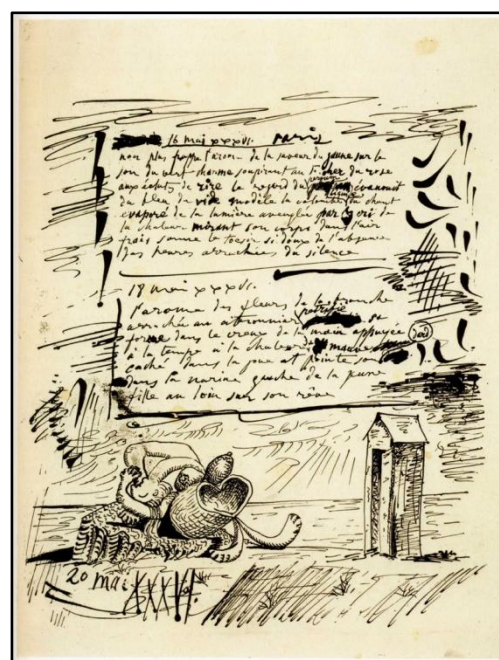 16 mai XXXVI. Paris
non plus frappe l'arome de la saveur du jaune sur le
son du vert charme soupirant au du rose
aux éclats de rire le regard du évanouit
du bleu du vide le chant
évaporé de la lumière aveugle par le cri de
la chaleur mirant son corps dans l'air
frais sonne le tocsin si doux de l'absence
des heures arrachées du silence
18 mai XXXVI.
l'arome des fleurs de la branche
arrachée au
forme dans le creux de la main appuyée
à la tempe à la chaleur
caché dans la joue et pointe son
dans la narine gauche de la jeune
fille au loin sur son rêve
20 mai XXXVI